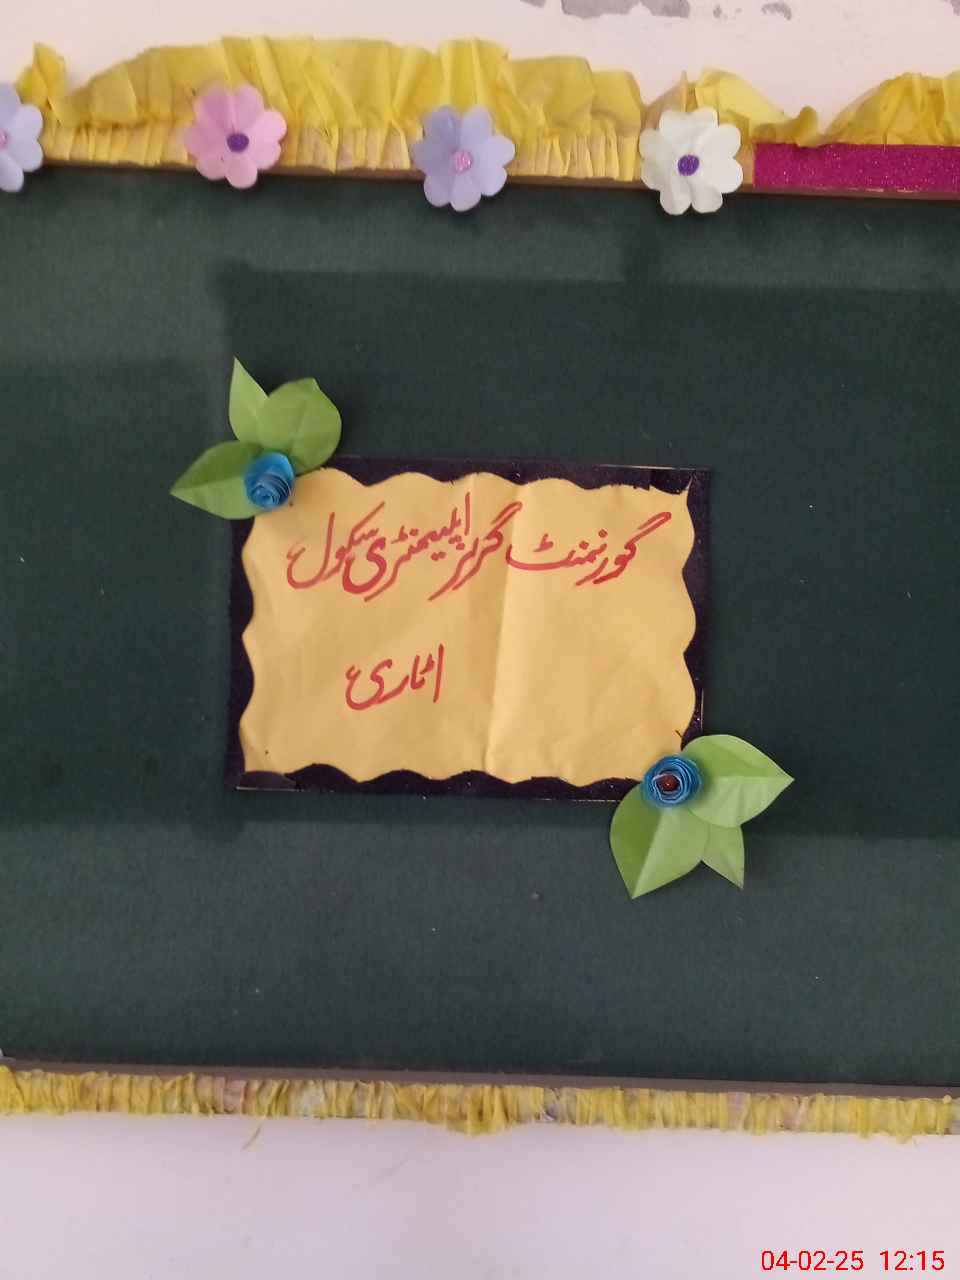 گورنمنٹ گرلز ایلیمنٹری سکول
اٹاری
04-02-25 12:15